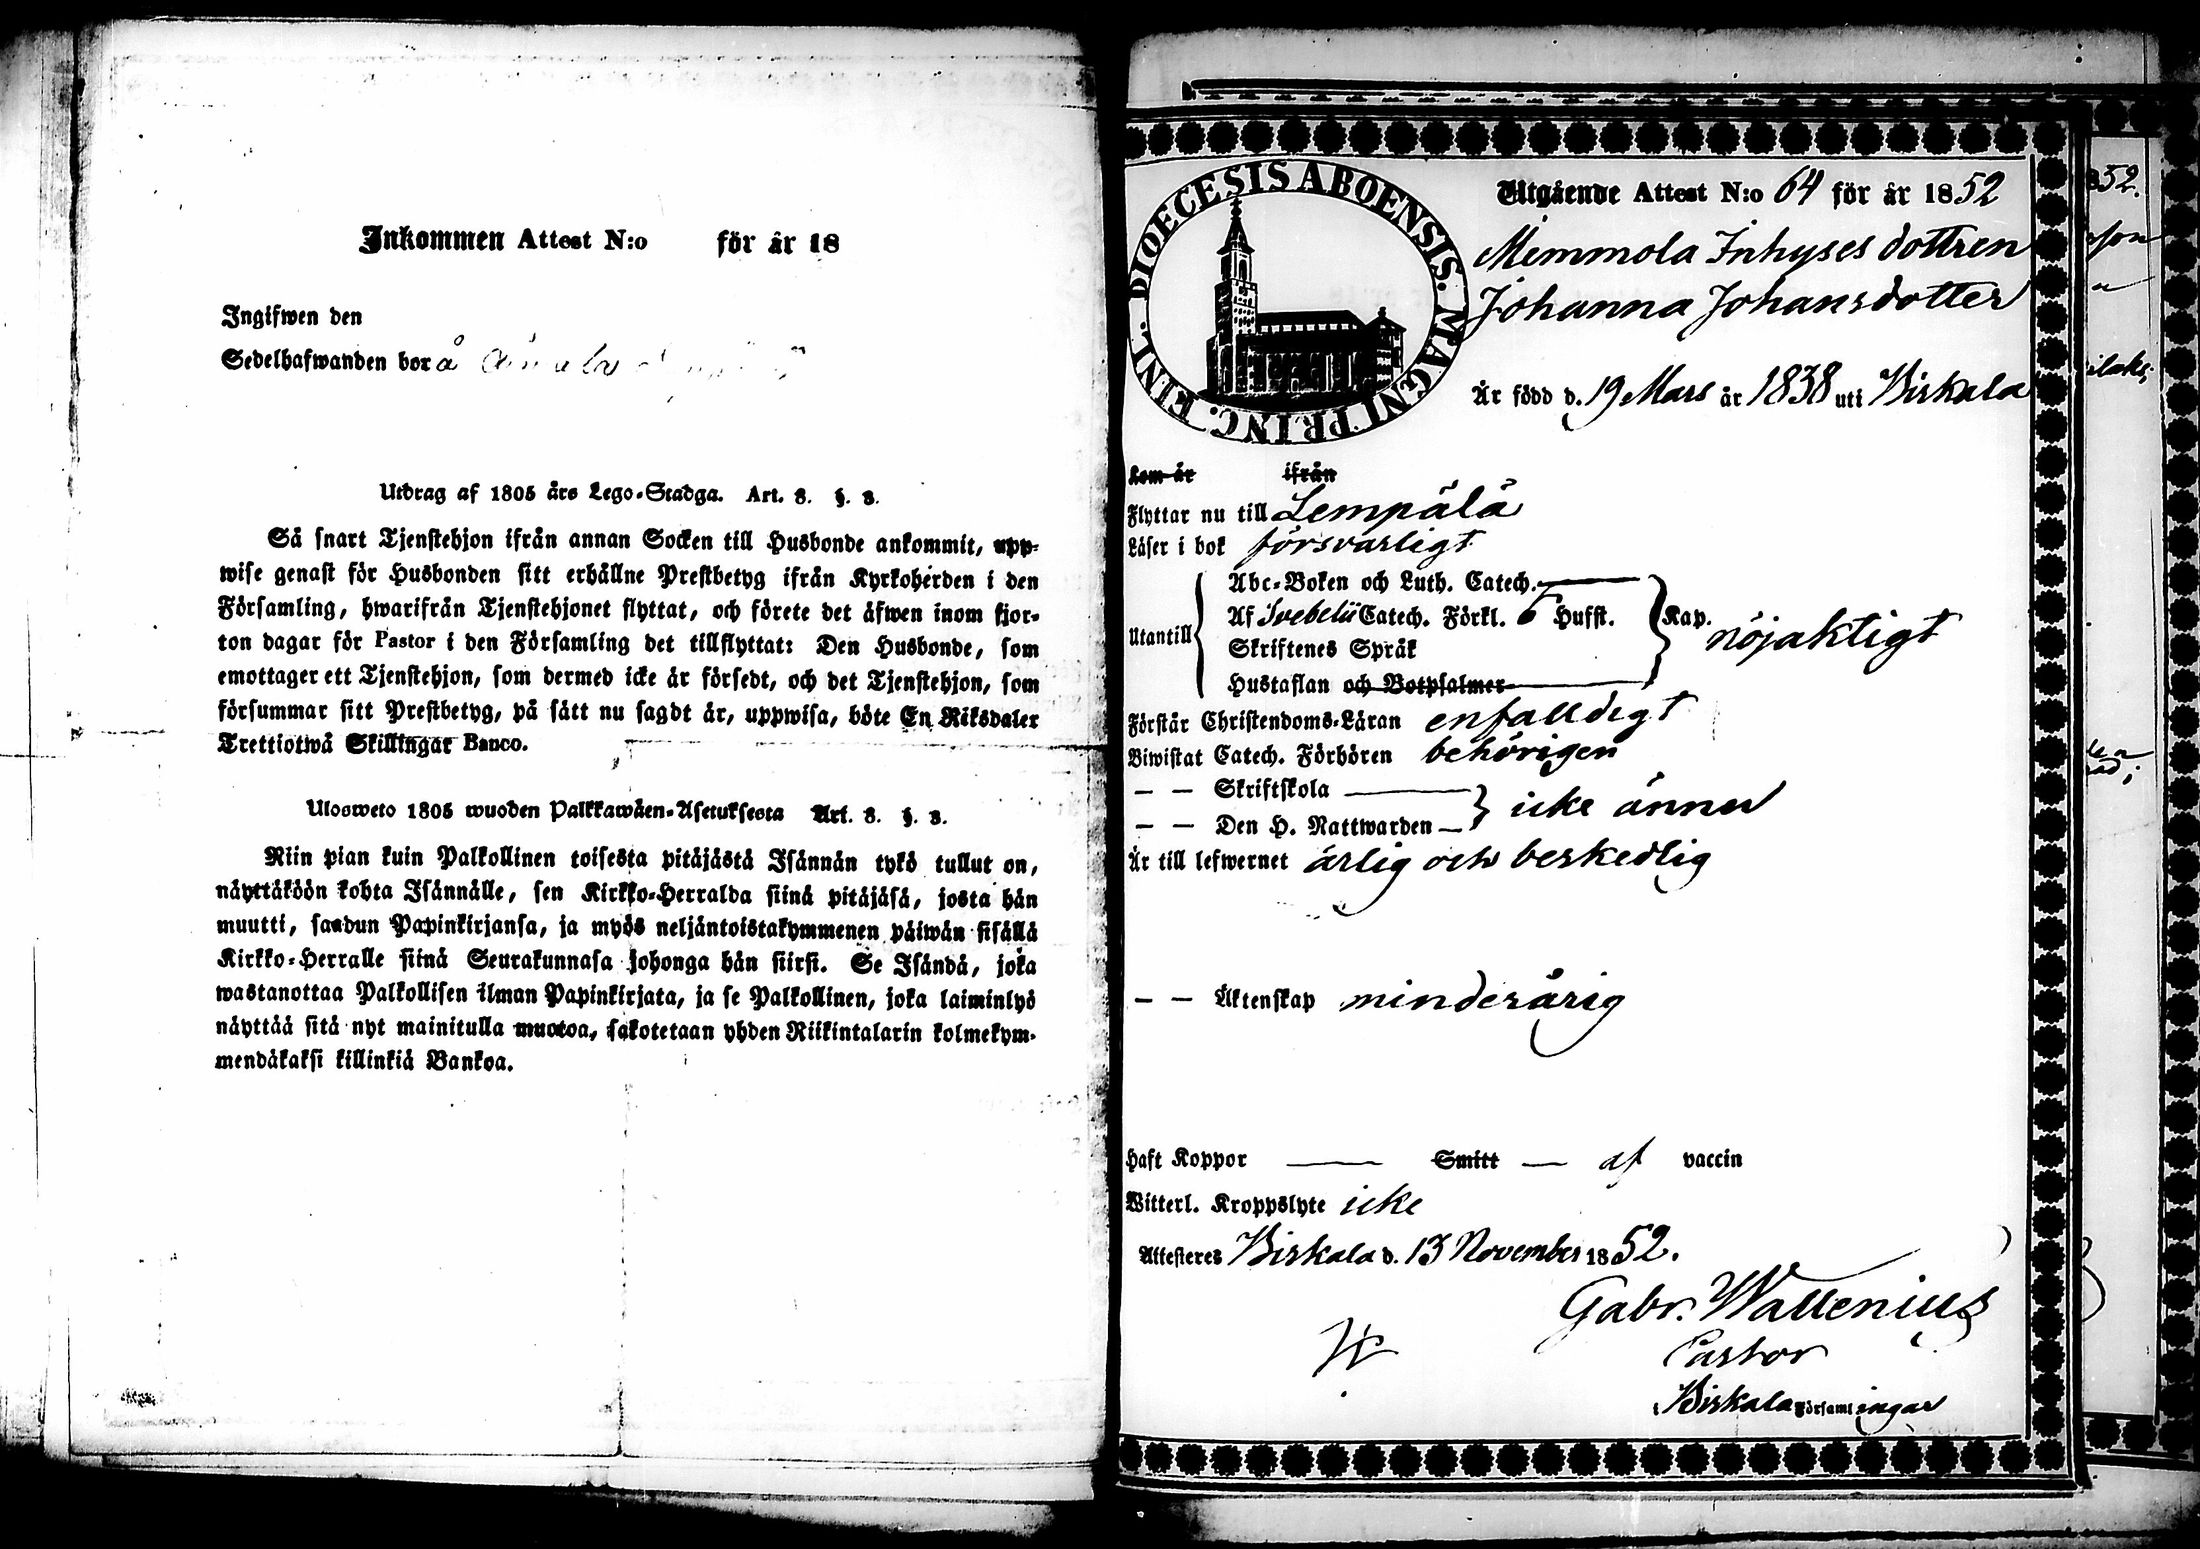 Inkommen Attest N:o för år 18
Ingifwen den
Sedelhafwanden bor å
Utdrag af 1805 års Lego-Stadga. Art. 8. §. 3.
Så snart Tjenstehjon ifrån annan Socken till Husbonde ankommit, upp-
wise genast för Husbonden sitt erhållne Prestbetyg ifrån Kyrkoherden i den
Församling, hwarifrån Tjenstehjonet flyttat, och förete det äfwen inom fjor-
ton dagar för Pastor i den Församling det tillflyttat: Den Husbonde, som
emottager ett Tjenstehjon, som dermed icke är försedt, och det Tjenstehjon, som
försummar sitt Prestbetyg, på sätt nu sagdt är, uppwisa, böte En Riksdaler
Trettiotwå Skillingar Banco.
Ulosweto 1805 wuoden Palkkawäen-Asetuksesta Art. 8. §. 3.
Niin pian kuin Palkollinen toisesta pitäjästä Isännän tykö tullut on,
näyttäköön kohta Isännälle, sen Kirkko-Herralda siinä pitäjäsä, josta hän
muutti, saadun Papinkirjansa, ja myös neljäntoistakymmenen päiwän sisällä
Kirkko-Herralle siinä Seurakunnasa johonga hän siirsi. Se Isändä, joka
wastanottaa Palkollisen ilman Papinkirjata, ja se Palkollinen, joka laiminlyö
näyttää sitä nyt mainitulla muotoa, sakotetaan yhden Riikintalarin kolmekym-
mendäkaksi killinkiä Bankoa.
DIOECESIS ABOENSIS. MAGNI PRINC. FINL.
Utgående Attest N:o 64 för år 1852
Memmola Inhyses dottren
Johanna Johansdotter
Är född d. 19 Mars år 1838 uti Birkala
kom år ifrån
Flyttar nu till Lempälä
Läser i bok försvarligt
Utantill
Abc-Boken och Luth. Catech.
Af Svebelii Catech. Förkl. 6 Hufst. Kap. nöjaktigt
Skriftenes Språk
Hustaflan och Botpsalmer
Förstår Christendoms-Läran enfalldigt
Biwistat Catech. Förhören behörigen
— — Skriftskola
— — Den H. Nattwarden icke ännu
Är till lefwernet ärlig och beskedlig
— — Äktenskap minderårig
Haft Koppor — Smitt — af vaccin
Witterl. Kroppslyte icke
Attesteres Birkala d. 13 November 1852.
Gabr. Wallenius
Pastor
Birkala Församlingar
52.